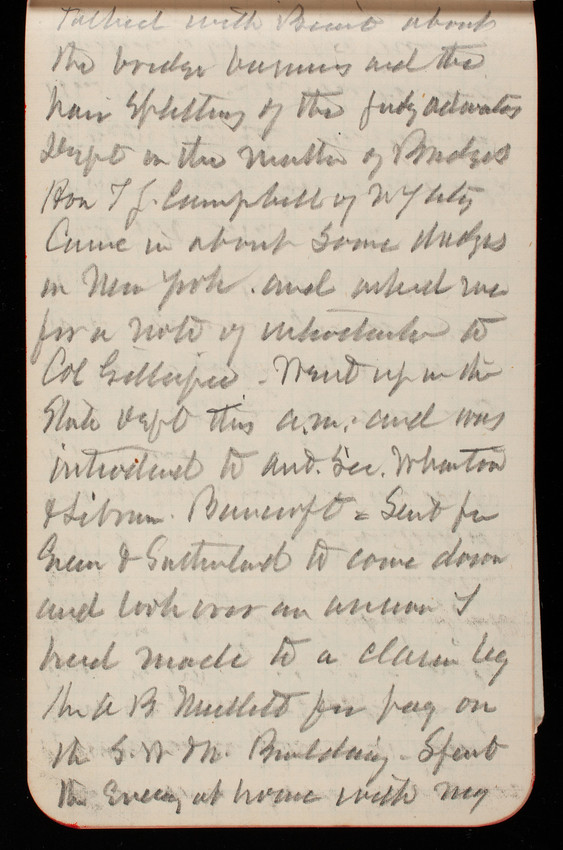 Talked with Bixit about
the bridge business and the
hair splitting of the Judg Advocates
Dept in the matter of Bridges
Hon T J. Campbell of N Y City
Came in about some dredges
in New York. and asked me
for a note of introduction to
Col Gillespie - Went up in the
State Dept this a.m. and was
introduced to and. Sec. Wharton
& Librn. Bancroft = Sent for
Green & Sutherland to come down
and look over an answer I
had made to a claim by
the A B Mullett for pay on
the S. W & N. Building - Spent
the Eveng at home with my